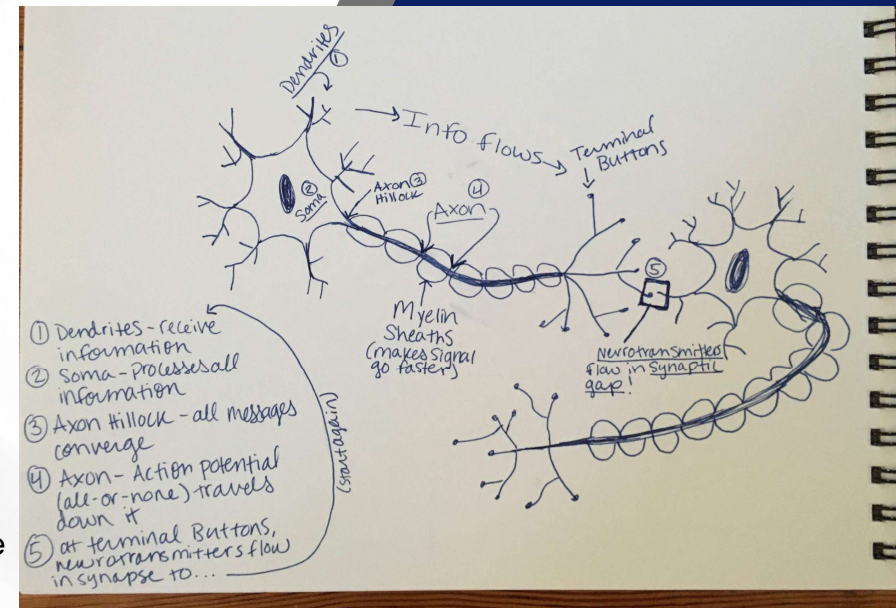 Dendrites
①
→ Info flows →
Terminal
Buttons
② Soma
Axon ③
Hillock
④
Axon
⑤
Myelin
Sheaths
(makes signal
go faster)
Neurotransmitters
flow in synaptic
gap!
① Dendrites - receive
information
② Soma - Processes all
information
③ Axon Hillock - all messages
converge
④ Axon - Action potential
(all-or-none) travels
down it
⑤ at terminal Buttons,
neurotransmitters flow
in synapse to...
(start again)
e